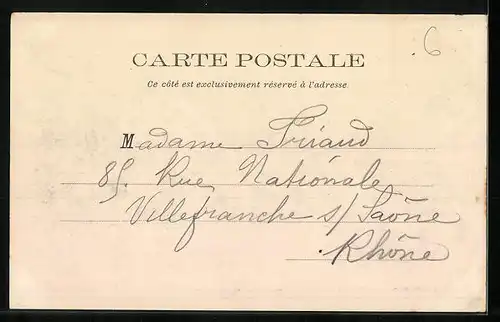 .6
CARTE POSTALE
Ce côté est exclusivement réservé à l'adresse.
Madame Friaud
85. Rue Nationale
Villefranche s/ Saône
Rhône